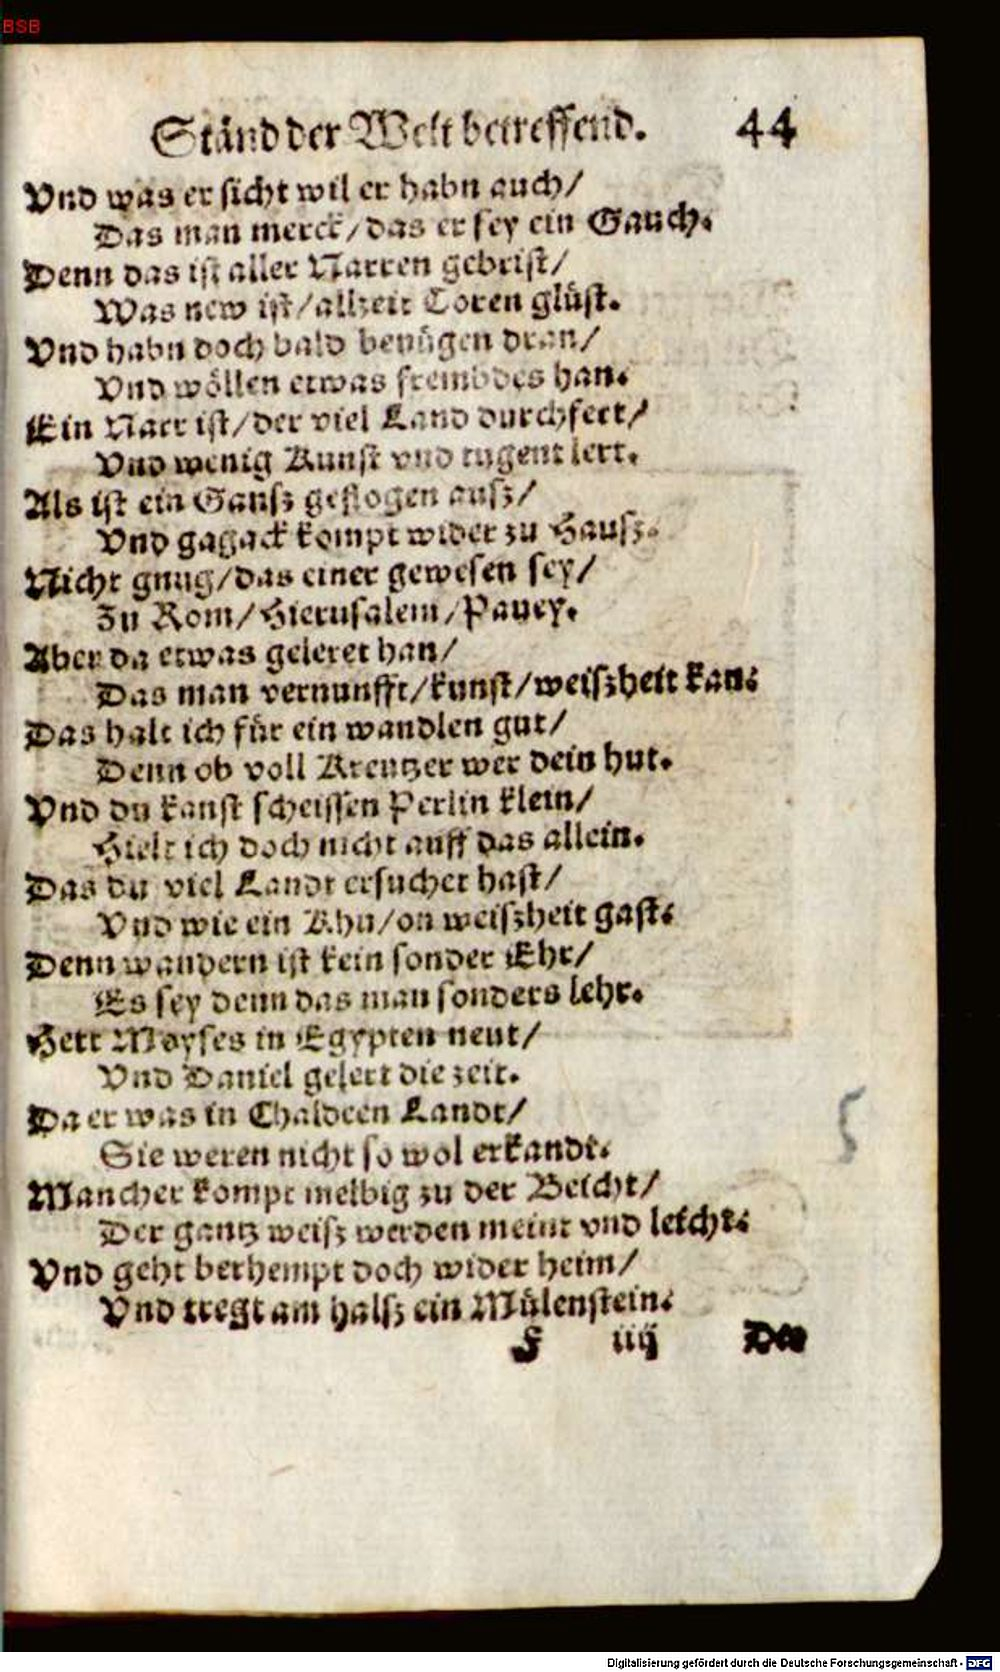 BSB
Ständ der Welt betreffend. 44
Vnd was er sicht wil er habn auch/
Das man merck/das er sey ein Gauch.
Denn das ist aller Narren gebrist/
Was new ist/allzeit Toren glüst.
Vnd habn doch bald benügen dran/
Vnd wöllen etwas frembdes han.
Ein Narr ist/der viel Land durchfert/
Vnd wenig Kunst vnd tugent lert.
Als ist ein Gansz geflogen ausz/
Vnd gagack kompt wider zu Hausz.
Nicht gnug/das einer gewesen sey/
Zu Rom/Hierusalem/Pauey.
Aber da etwas geleret han/
Das man vernunfft/kunst/weiszheit kan.
Das halt ich für ein wandlen gut/
Denn ob voll Kreutzer wer dein hut.
Vnd du kanst scheissen Perlin klein/
Hielt ich doch nicht auff das allein.
Das du viel Landt ersuchet hast/
Vnd wie ein Khu/on weiszheit gast.
Denn wandern ist kein sonder Ehr/
Es sey denn das man sonders lehr.
Hett Moyses in Egypten neut/
Vnd Daniel gelert die zeit.
Da er was in Chaldeen Landt/
Sie weren nicht so wol erkandt.
Mancher kompt melbig zu der Beicht/
Der gantz weisz werden meint vnd leicht.
Vnd geht berhempt doch wider heim/
Vnd tregt am halsz ein Mülenstein.
F iiij Des
Digitalisierung gefördert durch die Deutsche Forschungsgemeinschaft - DFG